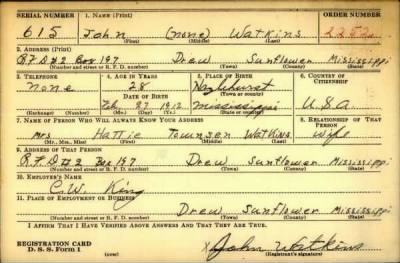 SERIAL NUMBER 1. NAME (Print) ORDER NUMBER
615 John (none) Watkins
(First) (Middle) (Last)
2. ADDRESS (Print)
R.F.D#2 Box 197 Drew Sunflower Mississippi
(Number and street or R. F. D. number) (Town) (County) (State)
3. TELEPHONE 4. AGE IN YEARS 5. PLACE OF BIRTH 6. COUNTRY OF CITIZENSHIP
None 28 Hazlehurst
DATE OF BIRTH (Town or county)
Feb. 27 1912 Mississippi U.S.A
(Exchange) (Number) (Mo.) (Day) (Yr.) (State or country)
7. NAME OF PERSON WHO WILL ALWAYS KNOW YOUR ADDRESS 8. RELATIONSHIP OF THAT PERSON
Mrs Hattie Townsen Watkins Wife
(Mr., Mrs., Miss) (First) (Middle) (Last)
9. ADDRESS OF THAT PERSON
R.F.D#2 Box 197 Drew Sunflower Mississippi
(Number and street or R. F. D. number) (Town) (County) (State)
10. EMPLOYER'S NAME
C.W. King
11. PLACE OF EMPLOYMENT OR BUSINESS
Drew Sunflower Mississippi
(Number and street or R. F. D. number) (Town) (County) (State)
I AFFIRM THAT I HAVE VERIFIED ABOVE ANSWERS AND THAT THEY ARE TRUE.
REGISTRATION CARD
D. S. S. Form 1 (over) X John Watkins
(Registrant's signature)